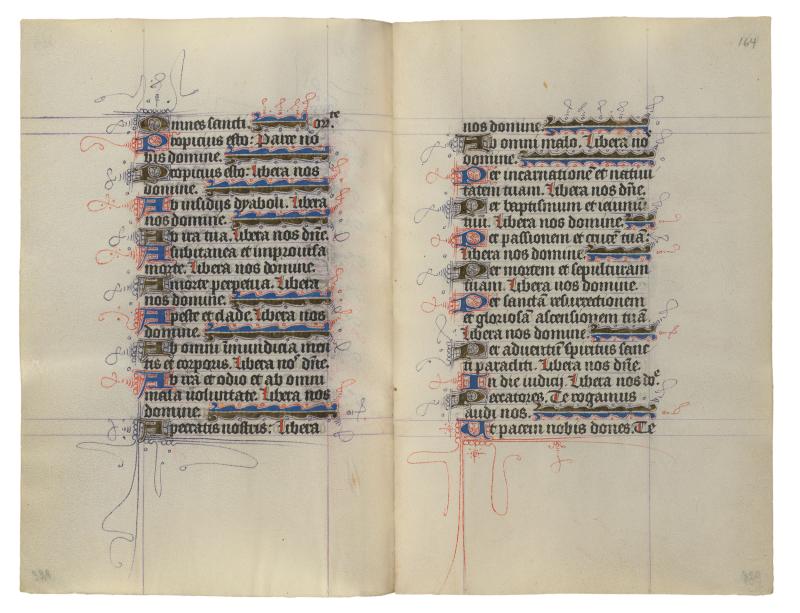 Omnes sancti. or.te
Propicius esto: Parce no
bis domine.
Propicius esto: Libera nos
domine.
Ab insidijs dyaboli. Libera
nos domine.
Ab ira tua. Libera nos dñe.
A subitanea et improvisa
morte. Libera nos domine.
A morte perpetua. Libera
nos domine.
A peste et clade. Libera nos
domine.
Ab omni inmundicia men
tis et corporis. Libera noꝰ dñe.
Ab ira et odio et ab omni
mala voluntate. Libera nos
domine.
A peccatis nostris: Libera
164
nos domine.
Ab omni malo. Libera noꝰ
domine.
Per incarnationē et natiui
tatem tuam. Libera nos dñe.
Per baptismum et ieiuniū
tuū. Libera nos domine.
Per passionem et crucē tuā:
Libera nos domine:
Per mortem et sepulturam
tuam. Libera nos domine.
Per sanctā resurrectionem
et gloriosā ascensionem tuā.
Libera nos domine.
Per aduentū spiritus sanc
ti paracliti. Libera nos dñe.
In die iudicij. Libera nos do.e
Peccatores, Te rogamus
audi nos.
Ut pacem nobis dones. Te